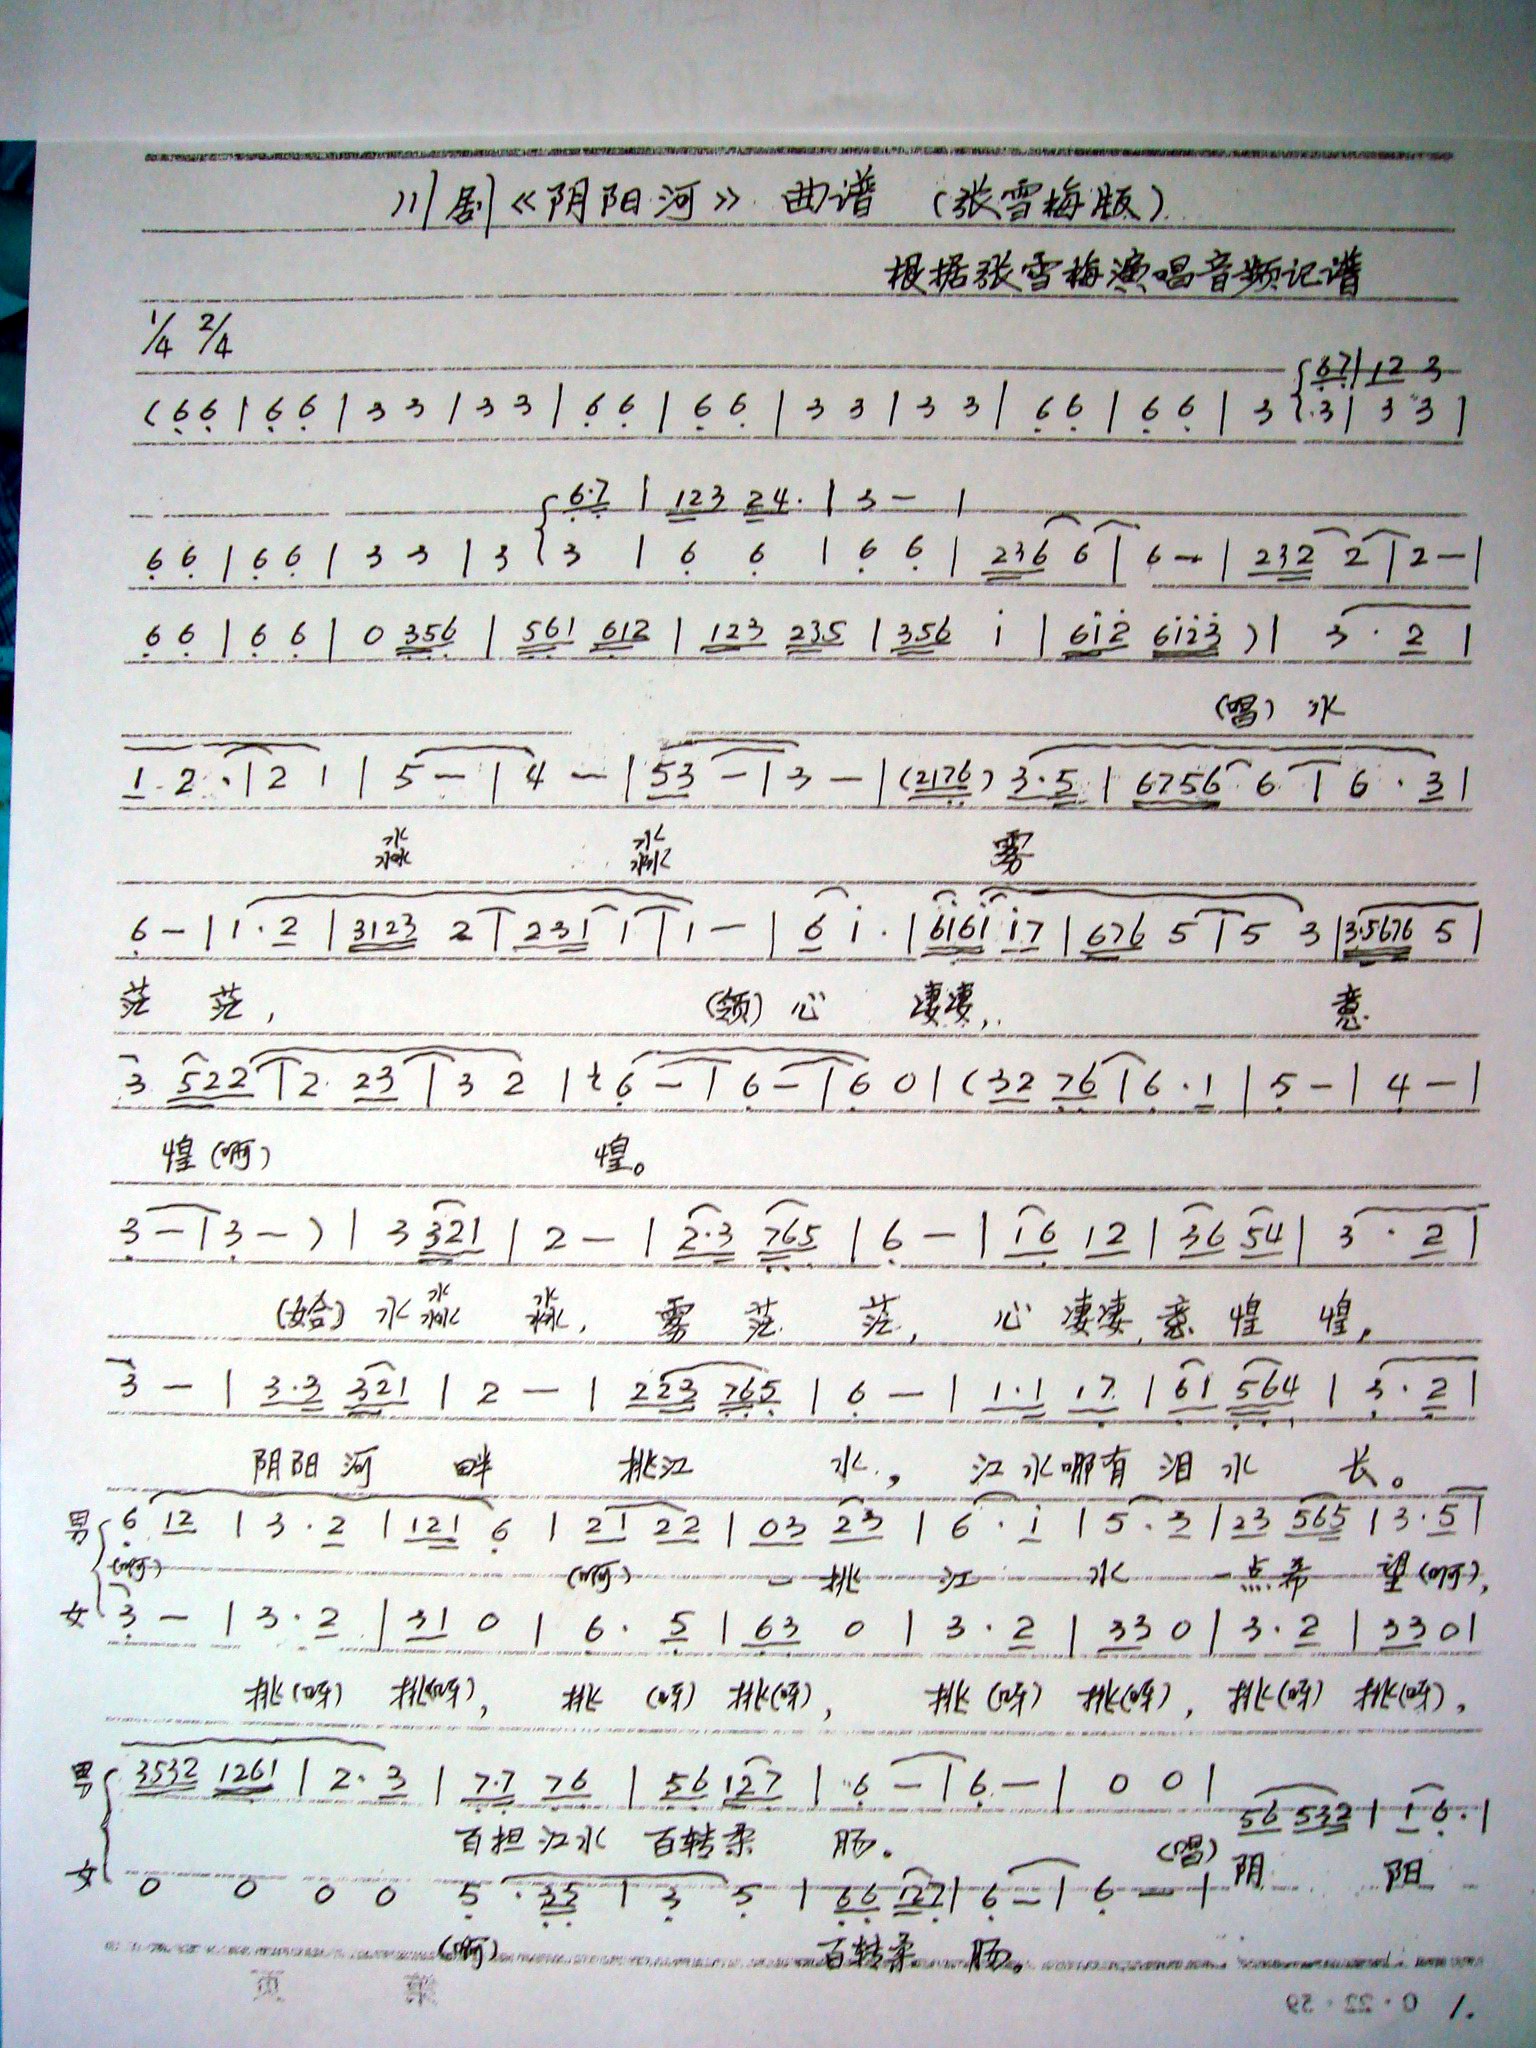 川剧《阴阳河》曲谱 (张雪梅版)
根据张雪梅演唱音频记谱
1/4 2/4
{67|12 3
(66|66|33|33|66|66|33|33|66|66|3{.3|33|
{6·7|123 24·|3-|
66|66|33|3{3|6 6|66|236 6|6-|232 2|2-|
66|66|0 356|561 612|123 235|356 i|6i2 6i23)|3·2|
(唱) 水
1 2·|2 1|5-|4-|53-|3-|(2176) 3·5|6756 6|6·3|
淼 淼 雾
6-|1·2|3123 2|231 1|1-|6 i·|6i6i i7|676 5|5 3|3·5676 5|
茫 茫, (领) 心 凄凄, 意
3 522|2 23|3 2|6-|6-|6 0|(32 76|6·1|5-|4-|
惶(啊) 惶。
3-|3-)|3 321|2-|2·3 765|6-|16 12|36 54|3·2|
(合) 水淼 淼, 雾 茫 茫, 心 凄凄, 意 惶 惶,
3-|3·3 321|2-|223 765|6-|1·1 17|61 564|3·2|
阴阳河 畔 挑江 水, 江水哪有 泪水 长。
男 6 12|3·2|121 6|21 22|03 23|6·i|5·3|23 565|3·5|
(啊) (啊) 一挑 江 水 一点希 望(啊),
女 3-|3·2|31 0|6·5|63 0|3·2|33 0|3·2|33 0|
挑(呀) 挑(呀), 挑 (呀) 挑(呀), 挑 (呀) 挑(呀), 挑(呀) 挑(呀),
男 3532 1261|2·3|7·7 76|56 127|6-|6-|0 0| 56 532|1 6·|
百担江水 百转柔 肠。 (唱) 阴 阳
女 0 0 0 0 5·35|3 5|66 127|6-|6-|
(啊) 百转柔 肠。
1.